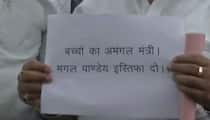 बच्चों का अमंगल मंत्री।
मंगल पाण्डेय इस्तिफा दो।